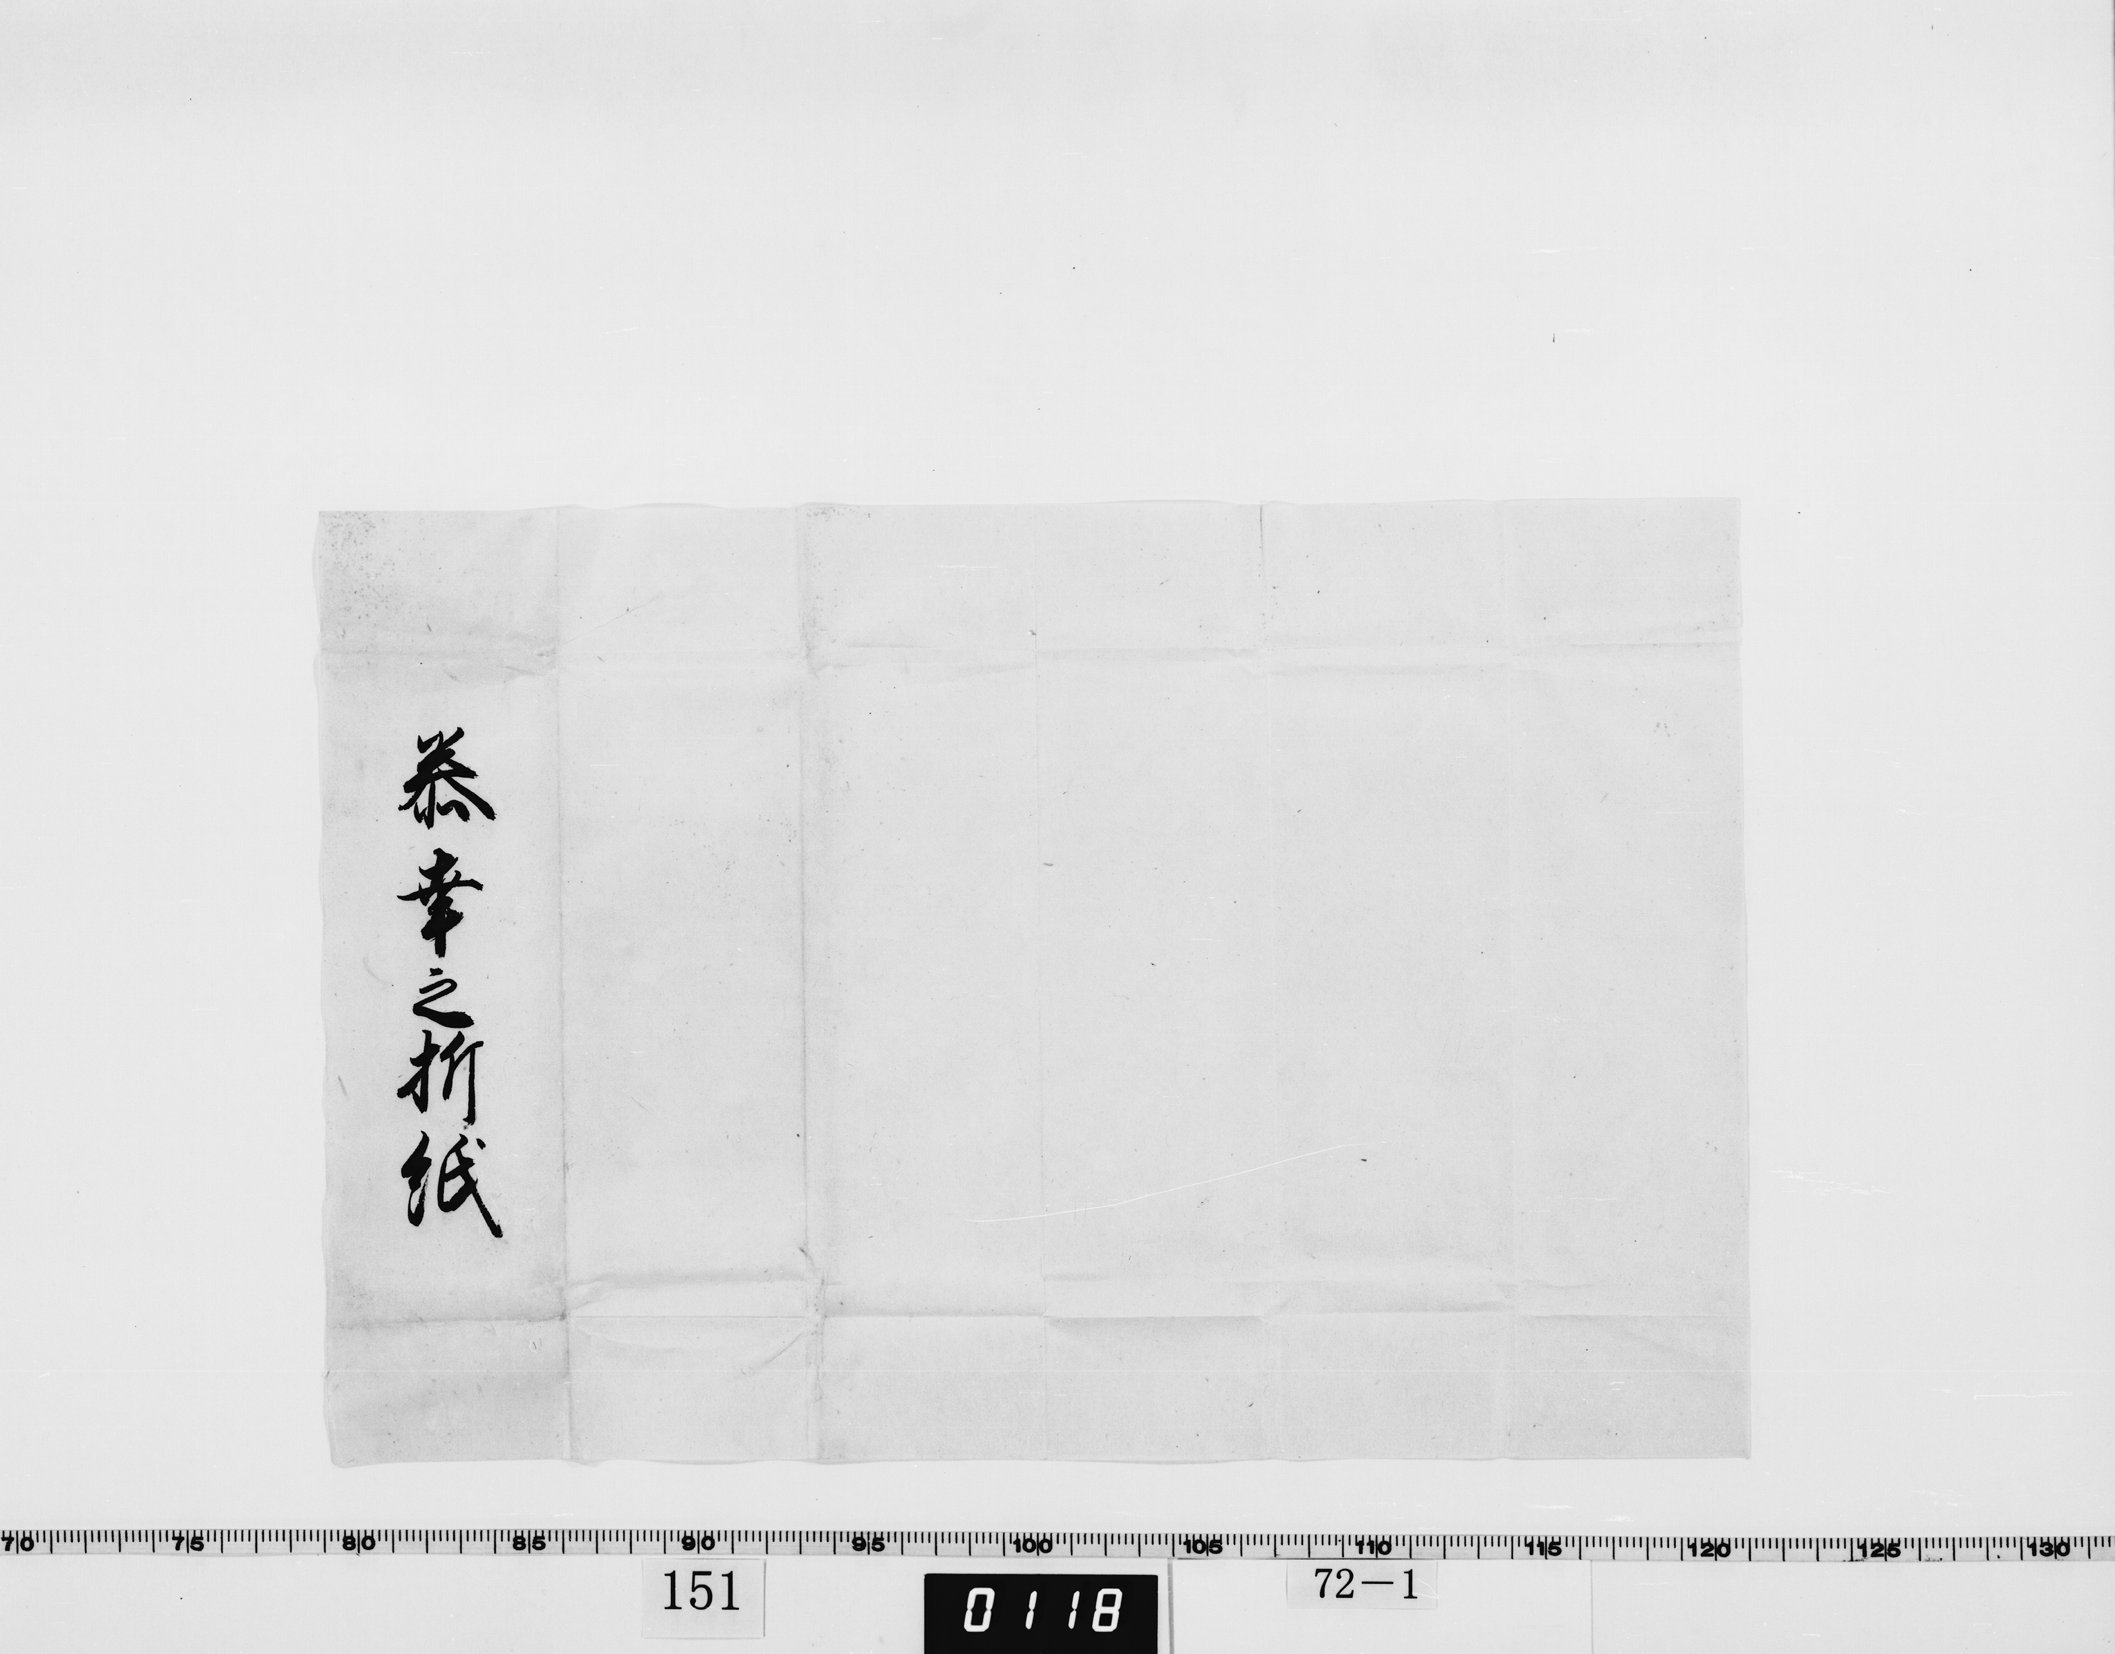 恭幸之折紙
70 75 80 85 90 95 100 105 110 115 120 125 130
151
0118
72-1